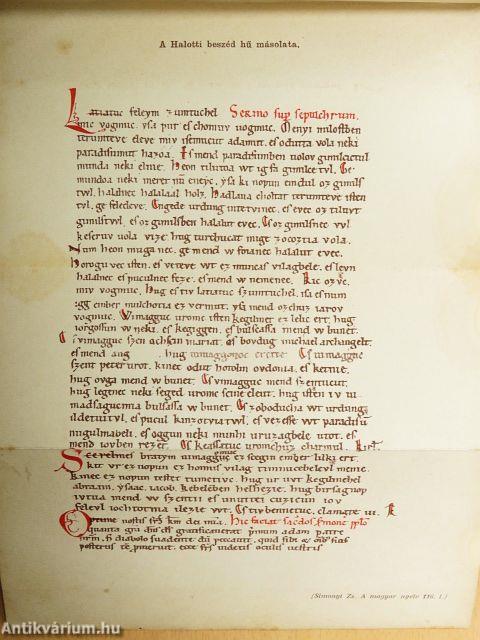 A Halotti beszéd hű másolata.
Latiatuc feleym zumtuchel Sermo sup sepulchrum.
mic vogmuc. ysa pur es chomuv uogmuc. Menyi milostben
terumteve eleve miv isemucut adamut. es odutta vola neki
paradisumut hazoa. Es mend paradisumben uolov gimilcictul
munda neki elnie. Heon tilutoa wt ig fa gimilce tvl. Ge
mundoa neki meret nu eneyc. ysa ki nopun emdul oz gimils
twl. halalnec halalaal holz. Hadlaua choltat terumteve isten
tvl. ge feledeve. Engede urdung intetvinec. es evec oz tiluvt
gimilstvl. es oz gimilsben halalut evec. Es oz gimilsnec vvl
keseruv uola vize. hug turchucat mige zocoztia vola.
Num heon muga nec. ge mend w foianec halalut evec.
Horogu vec isten. es veteve wt ez muncas vilagbele. es levn
halalnec es puculnec feze. es mend w nemenec. Kic ozvc.
miv vogmuc. Hug es tiv latiatuv szumtuchel. isa es num
igg ember mulchotia ez vermut. ysa mend ozchuz iarov
vogmuc. Vimagguc uromv isten kegilmet ez lelic ert. hug
iorgossun w neki. es kegiggen. es bulsassa mend w bunet.
Es vimagguc szen achscin mariat. es bovdug michael archangelt.
es mend ang hug uimaggonoc erette Es uimagguc
szent peter urot. kinec odut hotolm ovdonia. es ketnie.
hug ovga mend w bunet. Es vimagguc mend szentucut.
hug legenec neki seged uromv scine eleut. hug isten iv ui
madsagucmia bulsassa w bunet. Es zoboducha wt urdung
ildetuitvl. es pucul kinzotviatvl. es vezesse wt paradisu
nugulmabeli. es oggun neki munhi uruzagbele utot. es
mend iovben rezet. Es keassatuc uromchuz charmul. Kirl.
Scerelmes bratym uimagguc omuc ez scegin ember lilki ert.
kit vr ez nopun ez homus vilag timnucebelevl mente.
kinec ez nopun testet tumetivc. hug ur uvt kegilmehel
abraam. ysaac. iacob. kebeleben helhezie. hug birsagnop
ivtva mend w szentii es unuttei cuzicun iov
felevl iochtotnia ilezie wt. Es tivbennetuc. clamate iii. K
Hic faciat
quanta adam patre
diabolo suadente
posterus oculis vestris
(Simonyi Zs. A magyar nyelv 116. l.)
Antikvárium.hu